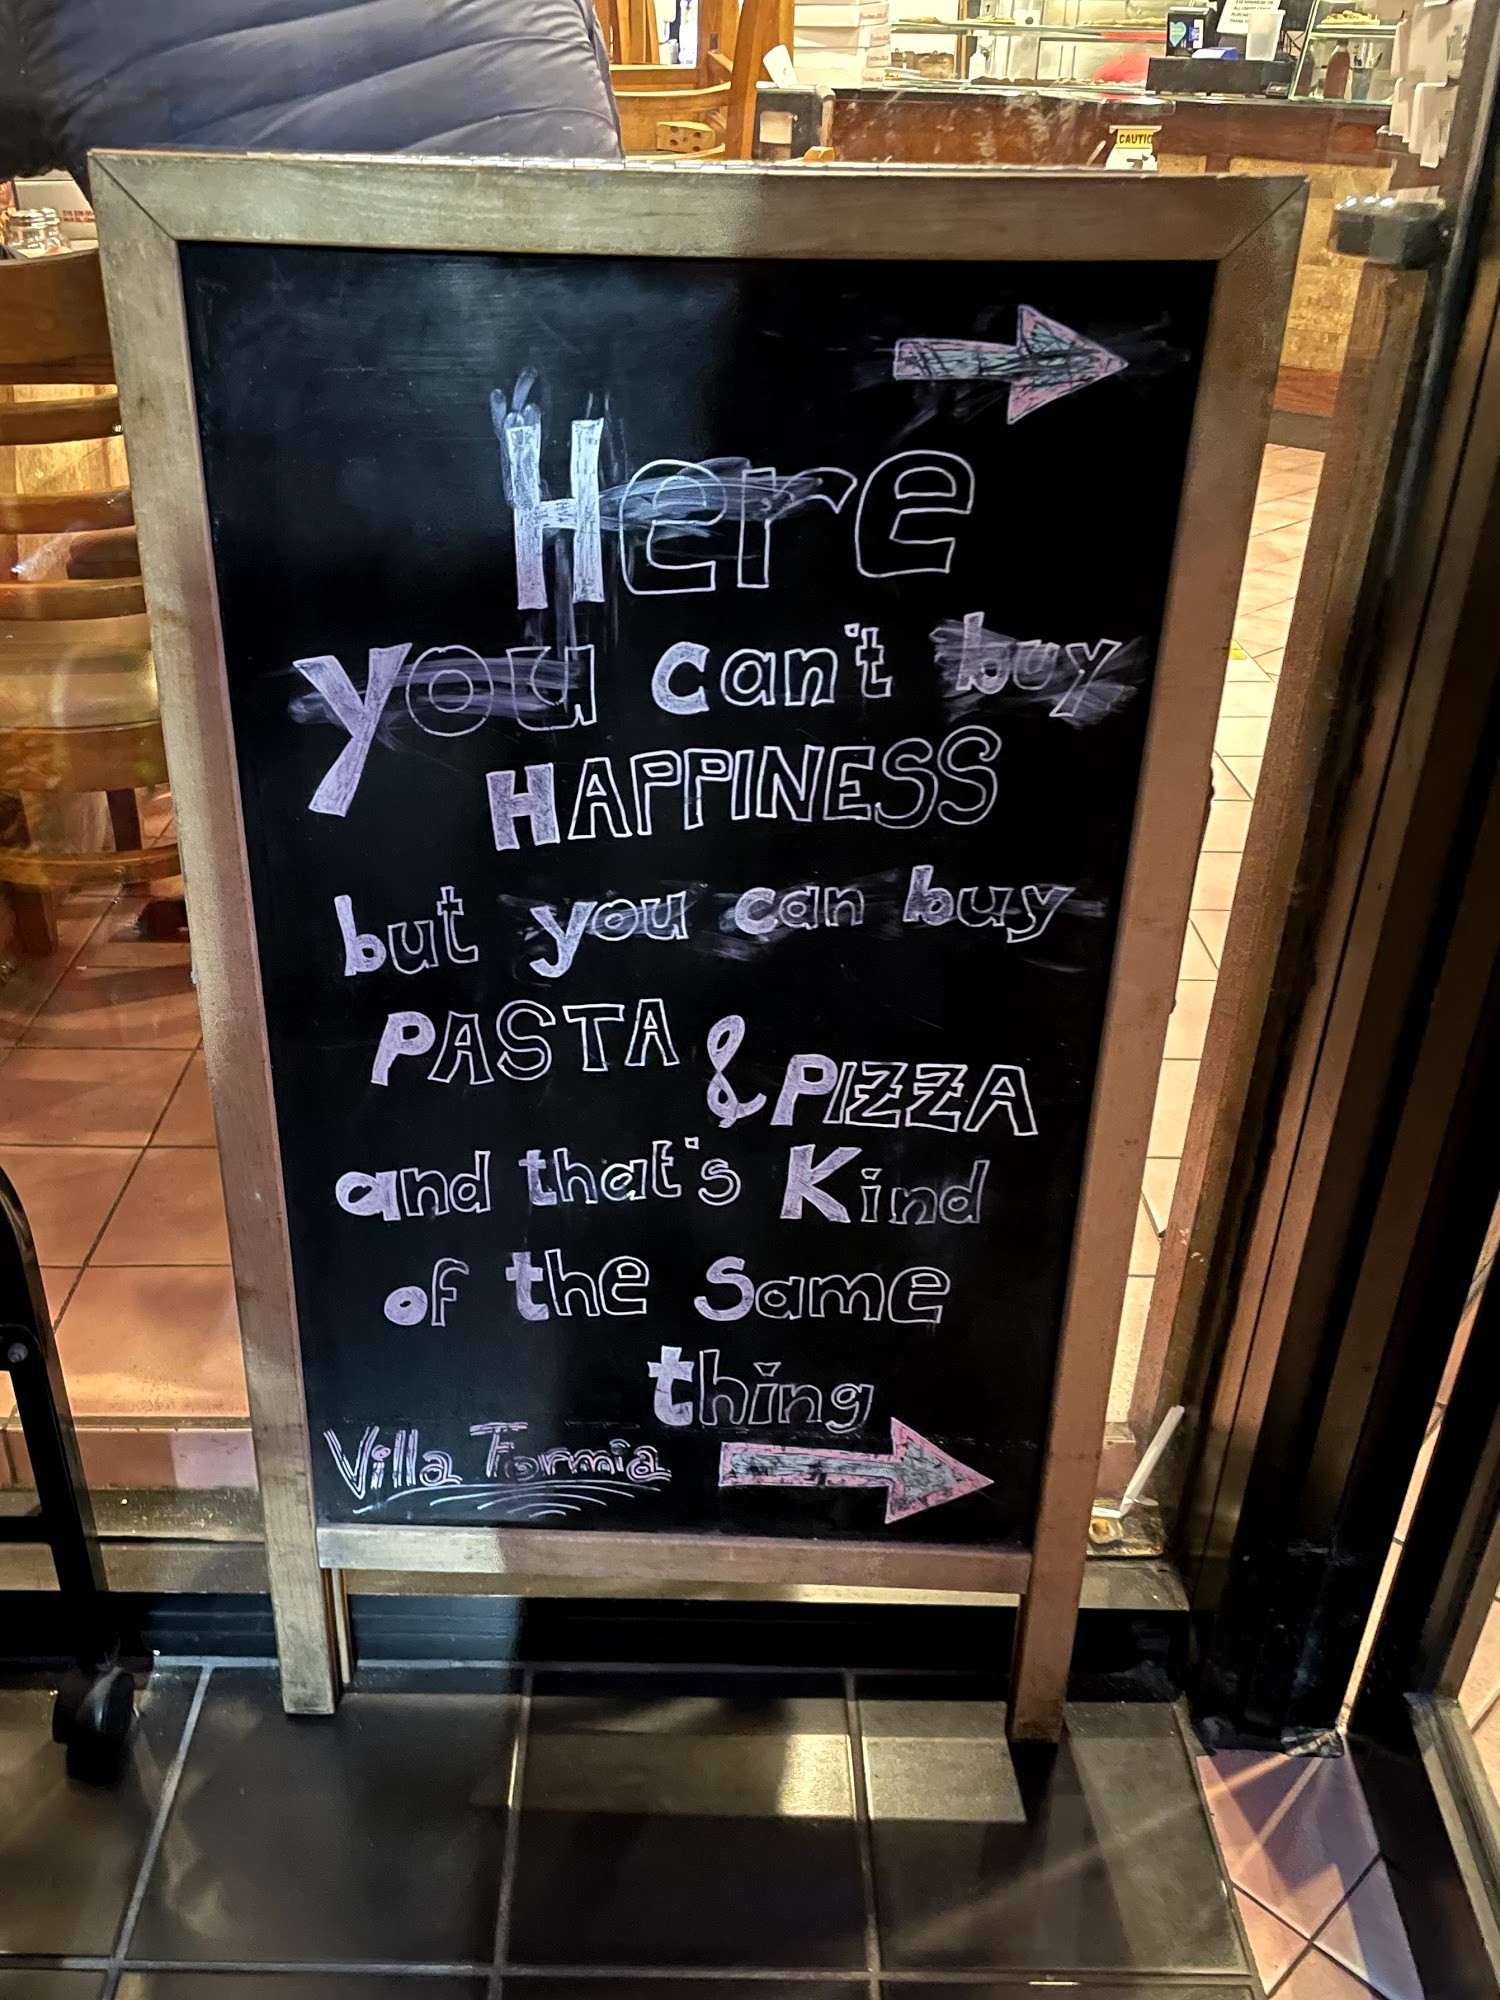 CAUTIO
Here
you can't buy
HAPPINESS
but you can buy
PASTA & PIZZA
and that's Kind
of the Same
thing
Villa Formia